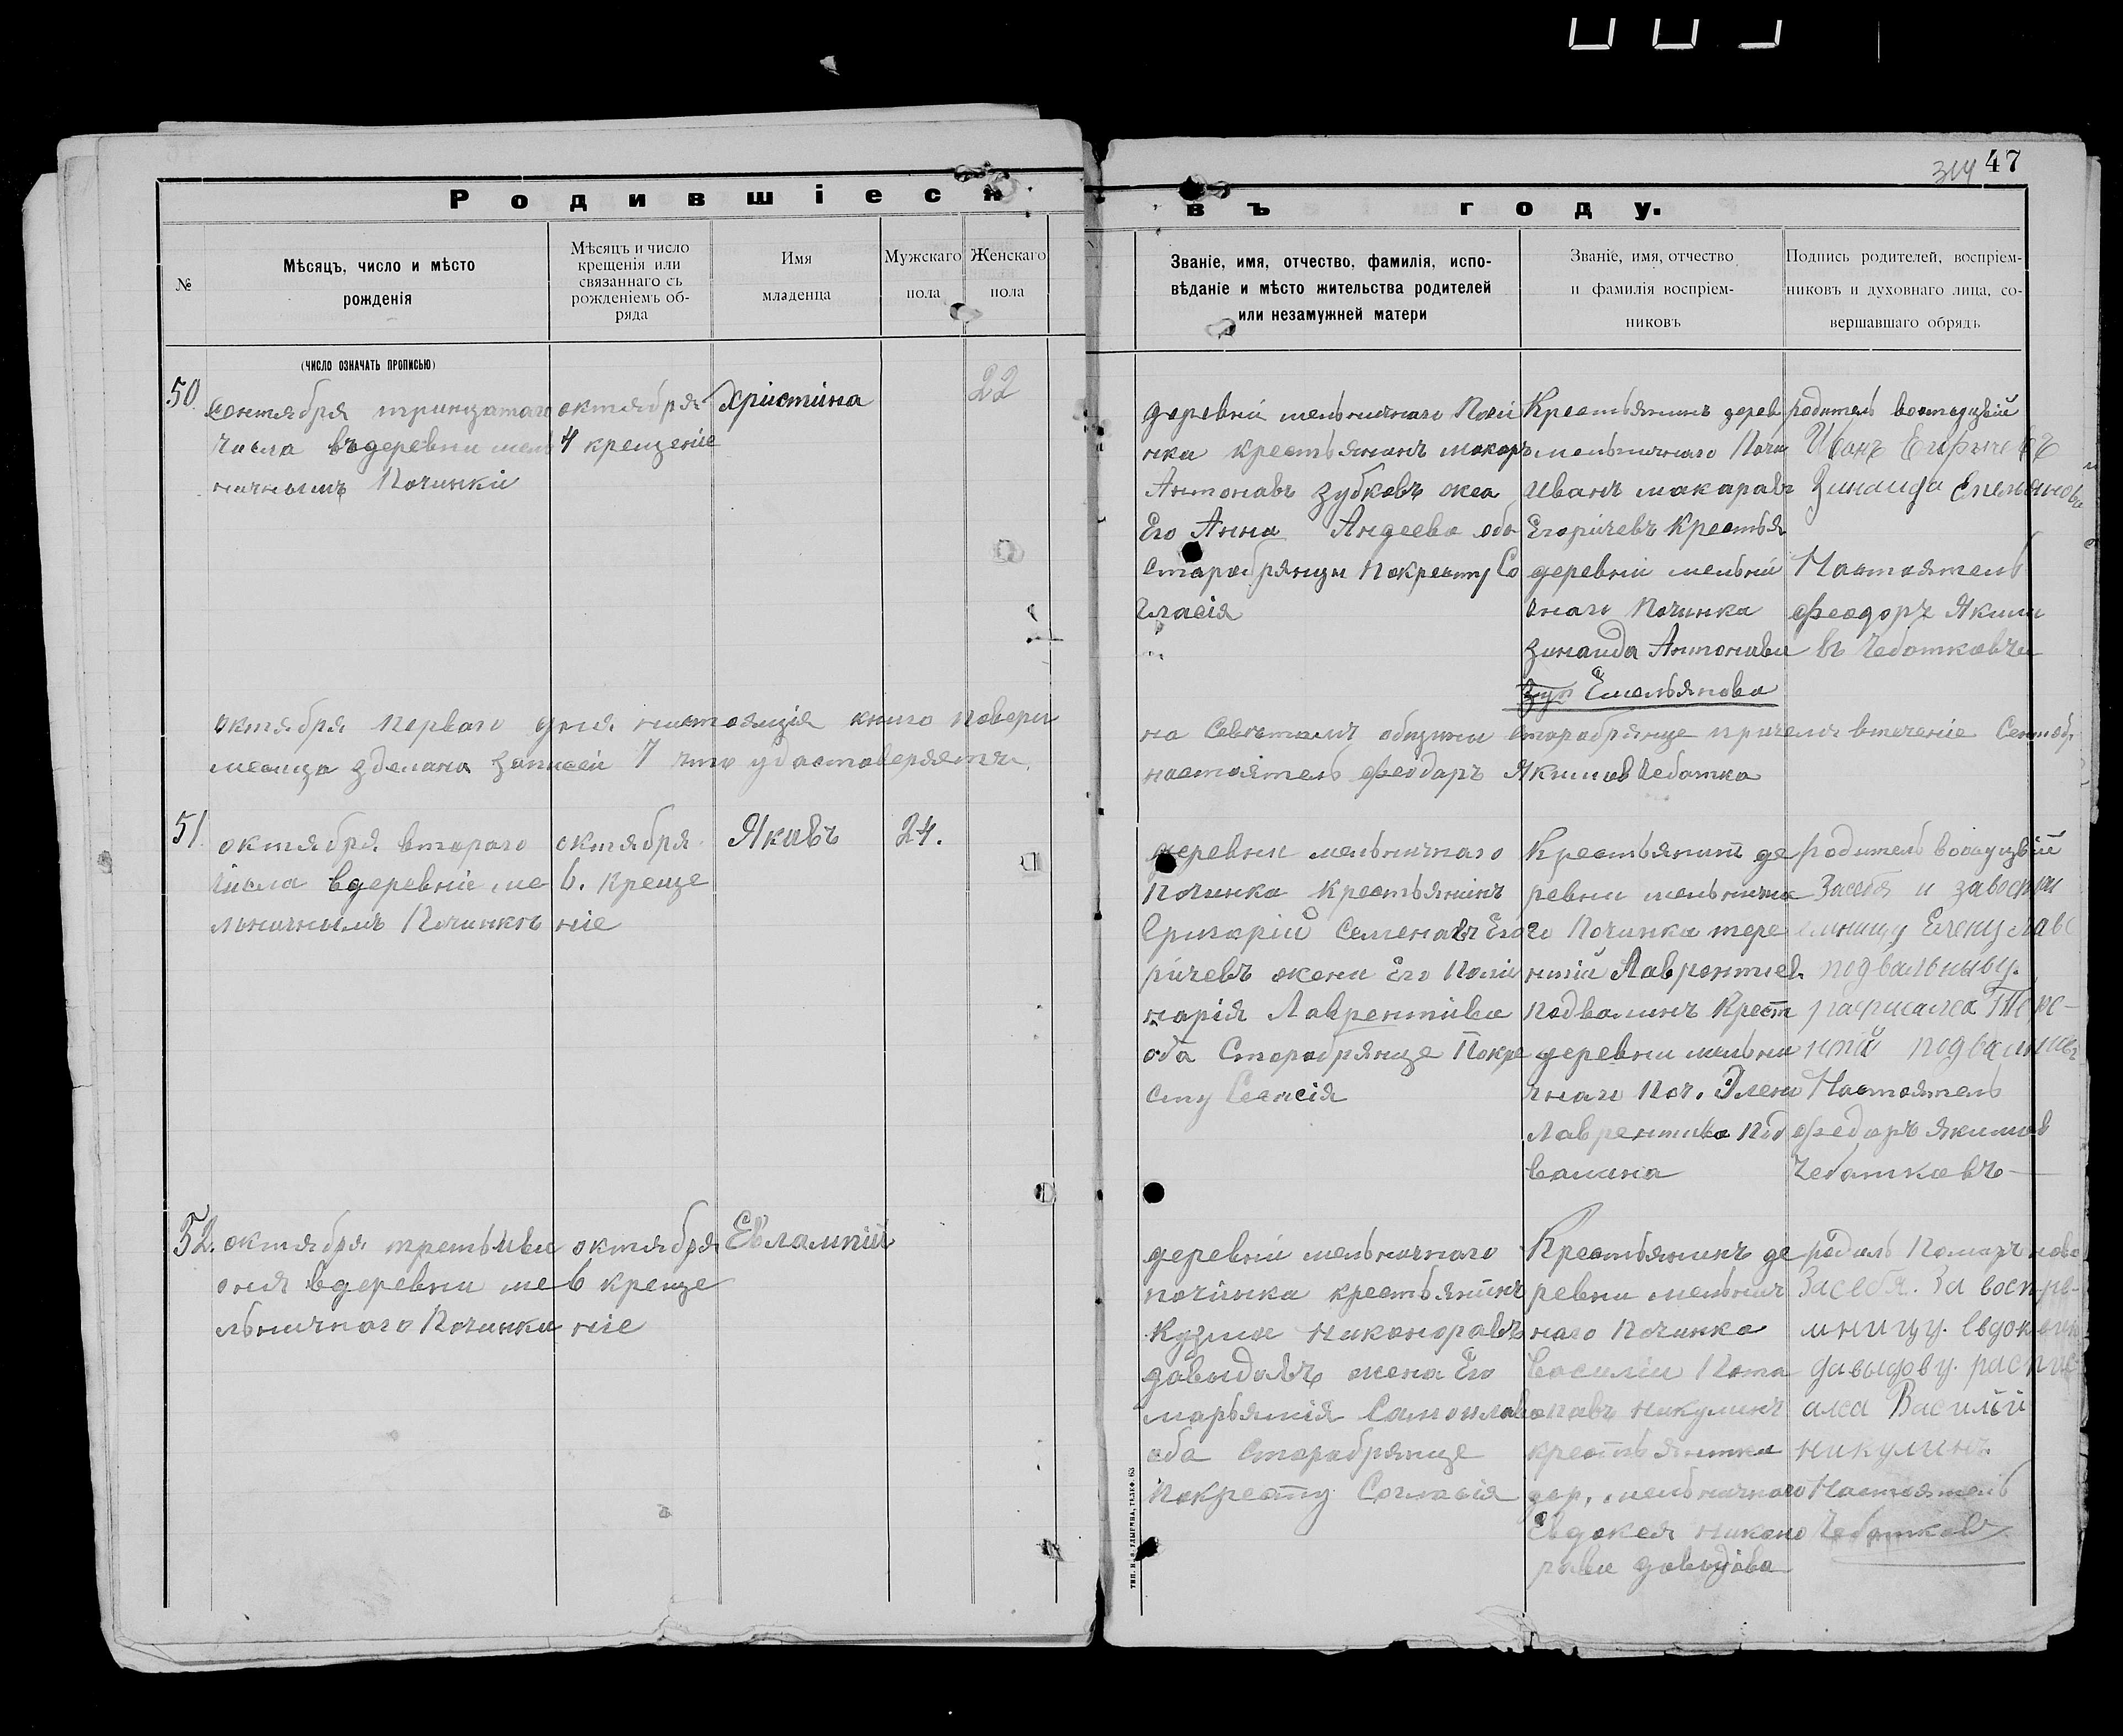 314 47
Родившіеся въ году.
№
Мѣсяцъ, число и мѣсто
рожденія
Мѣсяцъ и число
крещенія или
связаннаго съ
рожденіемъ об-
ряда
Имя
младенца
Мужскаго
пола
Женскаго
пола
Званіе, имя, отчество, фамилія, испо-
вѣданіе и мѣсто жительства родителей
или незамужней матери
Званіе, имя, отчество
и фамилія воспріем-
никовъ
Подпись родителей, воспріем-
никовъ и духовнаго лица, со-
вершавшаго обрядъ
(число означать прописью)
50
сентября тринцатаго
числа въдеревни мель
ничнымъ Починки
октября
4 крещеніе
Христина
22
деревни мельничнаго Почи
нка крестьянинъ макаръ
Антонавъ Зубковъ жеа
Его Анна Андеева оба
старобрянцы покресту Со
гласія
Крестьянинъ дерев
мельничнаго Почи
Иванъ макаравъ
Егоричевъ Крестья
деревни мельни
чнаго Починка
Зинаида Антонавы
Зуп Емельянова
родитель
Иванъ
Зинаида Емельянова
Настоятель
Феодоръ Якими
въ Чеботкавъ
октября перваго дня настоящія книго повери
месяца зделана записеи 7 что удастоверяетъ
на Советамъ общины старобрянце причемъ втечение Сентебр
настоятель Феодаръ Якимов Чеботка
51
октября втораго
числа вдеревніе ме
льничнымъ Починкъ
октября
6. креще
ніе
Якавъ
24.
деревни мельничнаго
Починка крестьянинъ
Григорій Семенавъ Его
ричевъ жена Его Поли
нарія Лаврентивна
оба Старобрянце Покре
сту Согласія
Крестьянинъ де
ревни мельнична
го Починка тере
нтій Лаврентиев
Подвалинъ Крест
деревни мельни
чнаго Поч. Елени
Лаврентива Под
валина
родитель
Засебя и завоспри
емницу Елену лав
подвальныву.
расписалса Тере-
нтій
Настоятель
Федаръ якимов
Чебаткавъ
52.
октября третьива
дня вдеревни ме
льничнаго Починка
октября
6 креще
ніе
Евлампій
деревни мельничнаго
починка крестьянинъ
Кузма Никаноравъ
давыдавъ жена Его
марьямія Самоилава
оба Старобрянце
Покресту Согласія
Крестьянинъ де
ревни мельнич
наго Починка
Василии Пота
павъ Никулинъ
крестьянка
дер. мельничнаго
Евдокея никано
рава давыдова
Засебя. За воспре-
мницу. Евдокию
давыдову. распис
алса Василій
никулинъ.
Настоятель
Чебатков